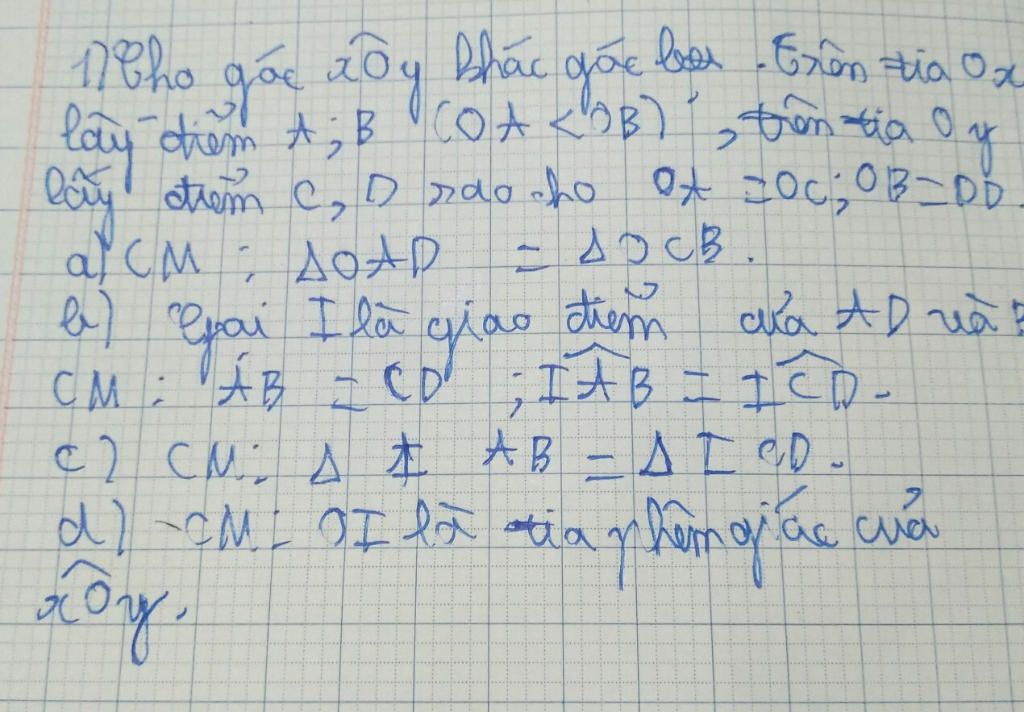 1) Cho góc xÔy khác góc bẹt. Trên tia Ox
lấy điểm A; B (OA < OB), trên tia Oy
lấy điểm C, D sao cho OA = OC; OB = OD.
a) CM: ΔOAD = ΔOCB.
b) Gọi I là giao điểm của AD và
CM: AB = CD; IÂB = IĈD.
c) CM: Δ I AB = Δ I CD.
d) CM: OI là tia phân giác của
xÔy.